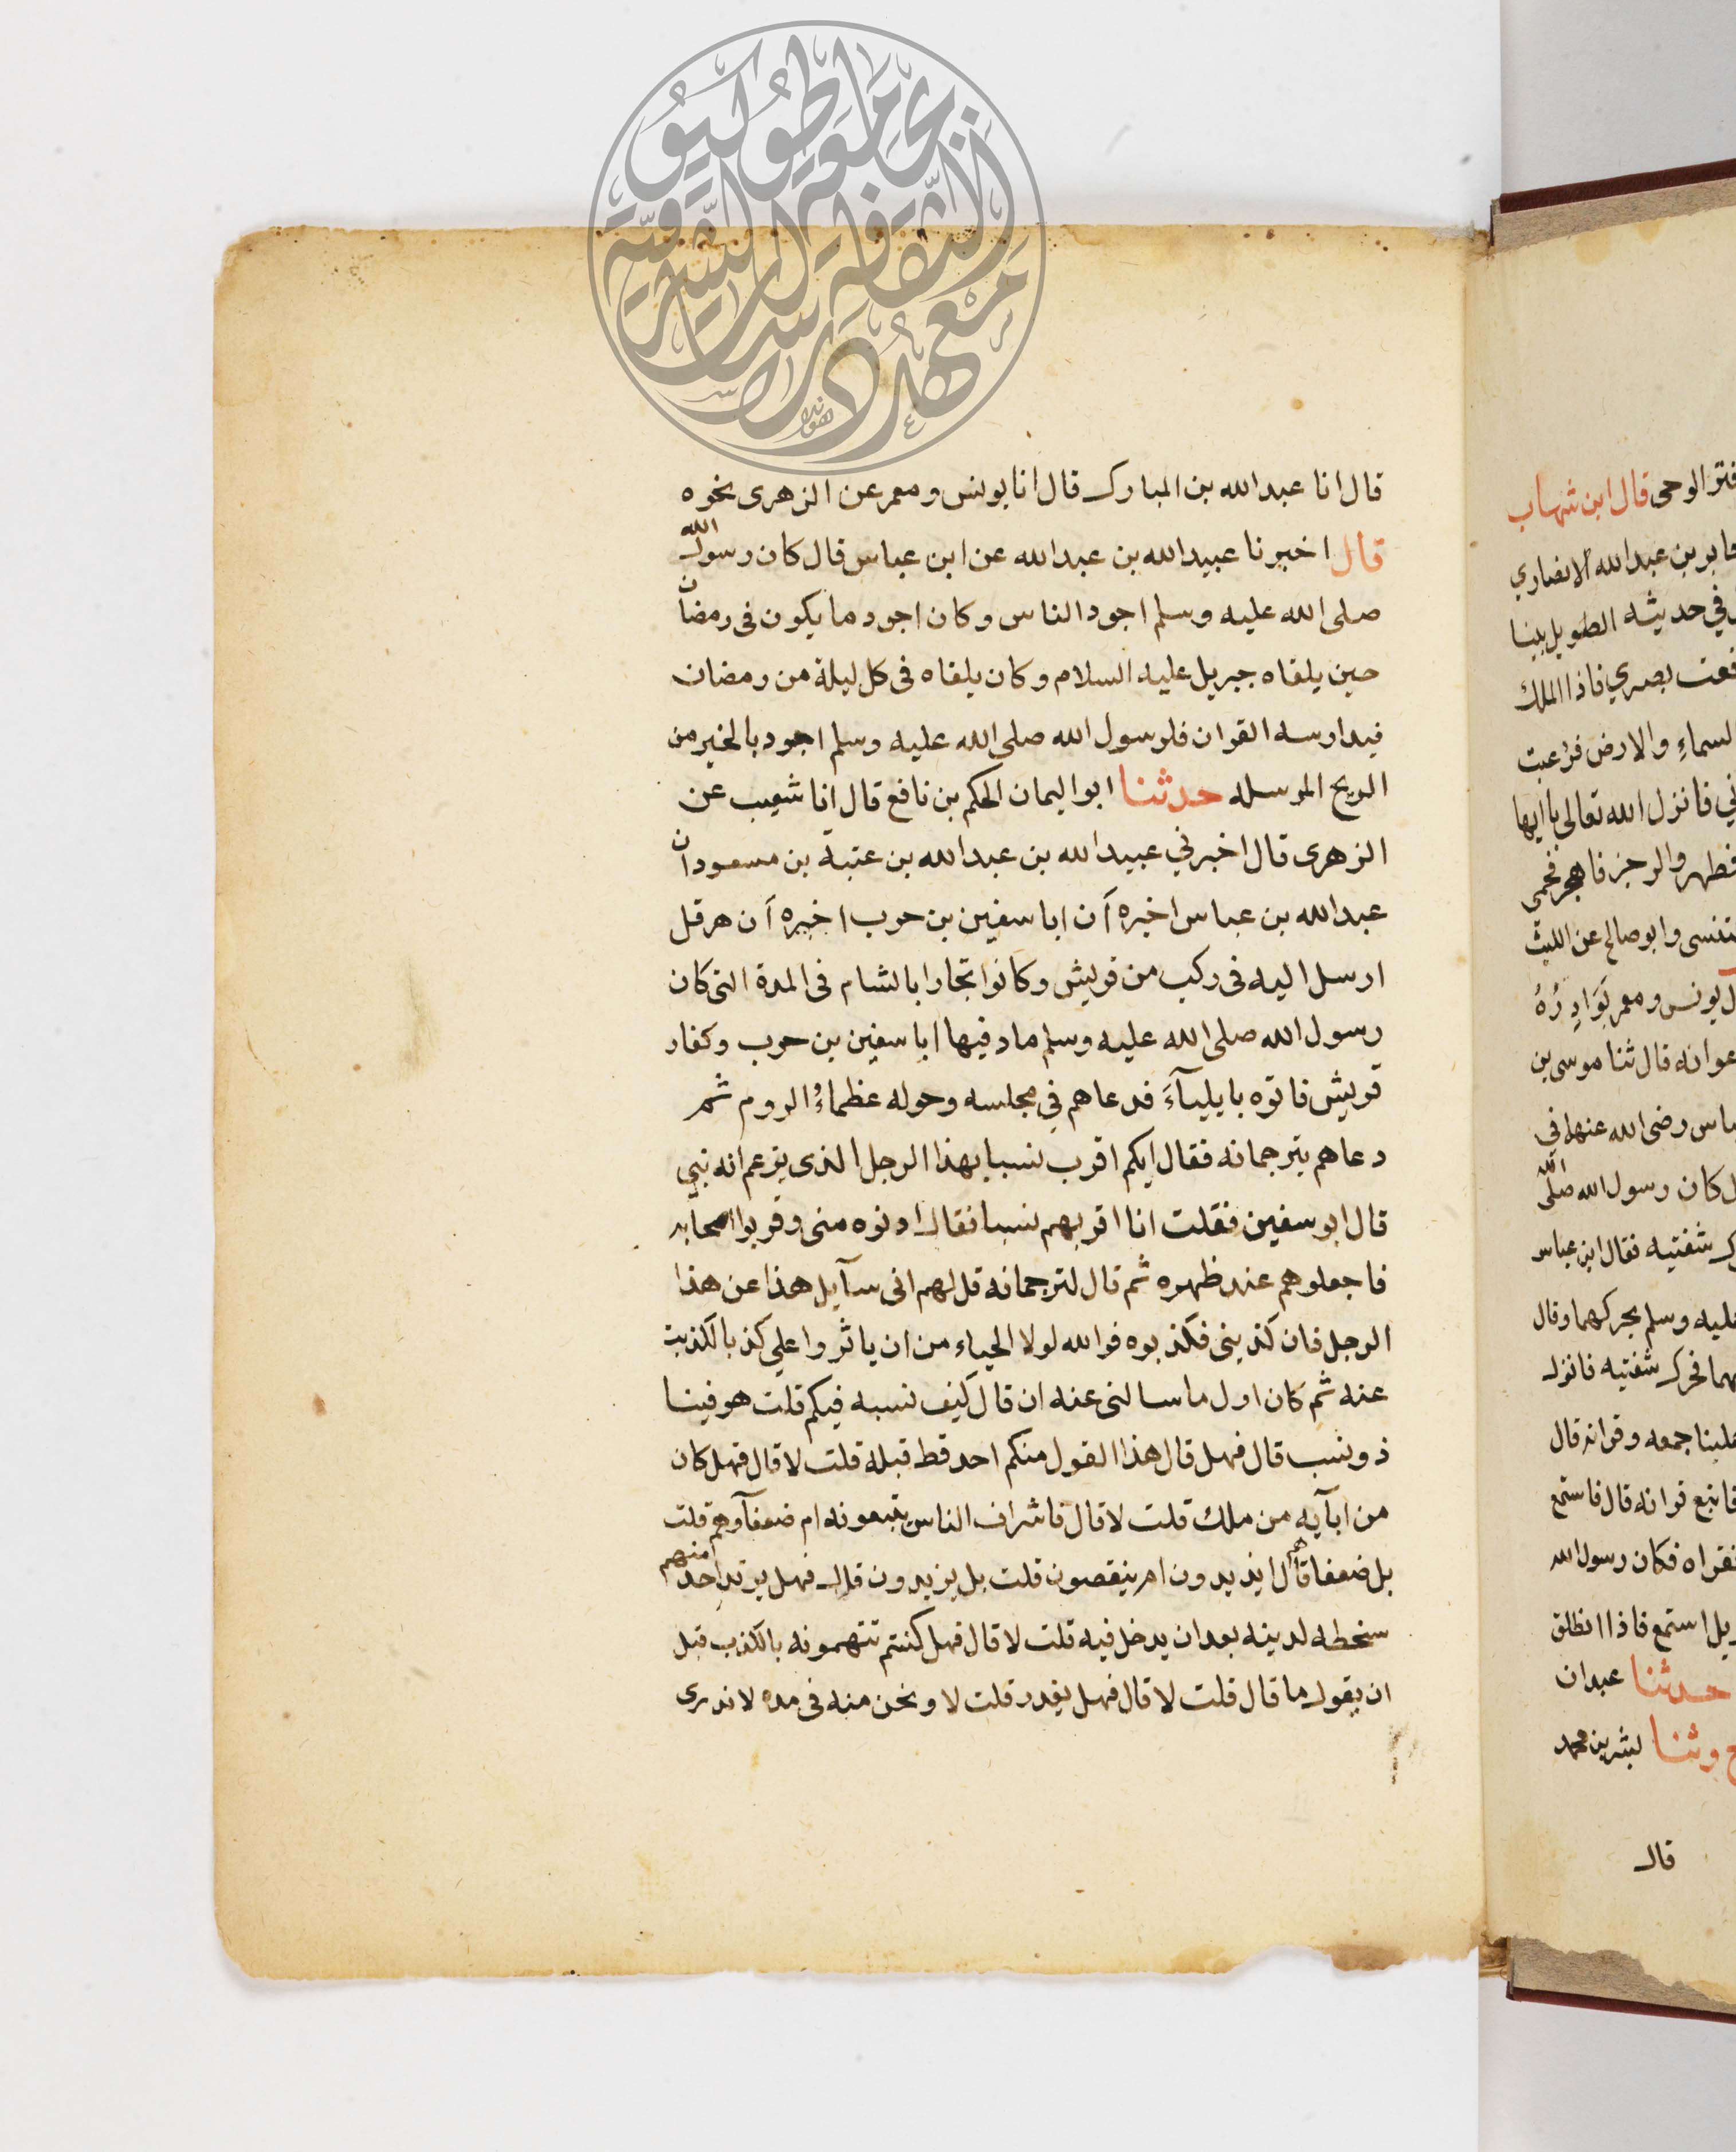 قال انا عبدالله بن المبارك قال انا يونس ومعمر عن الزهرى نحوه
قال اخبرنا عبيدالله بن عبدالله عن ابن عباس قال كان رسول الله
صلى الله عليه وسلم اجود الناس وكان اجود ما يكون فى رمضان
حين يلقاه جبريل عليه السلام وكان يلقاه فى كل ليلة من رمضان
فيدارسه القران فلرسول الله صلى الله عليه وسلم اجود بالخير من
الريح المرسله حدثنا ابو اليمان الحكم بن نافع قال انا شعيب عن
الزهرى قال اخبرني عبيدالله بن عبدالله بن عتبة بن مسعود ان
عبدالله بن عباس اخبره آن ابا سفين بن حرب اخبره آن هرقل
ارسل اليه فى ركب من قريش وكانوا تجارا بالشام فى المدة التى كان
رسول الله صلى الله عليه وسلم ماد فيها ابا سفين بن حرب وكفار
قريش فاتوه بايليآءَ فدعاهم في مجلسه وحوله عظماءُ الروم ثم
دعاهم بترجمانه فقال ايكم اقرب نسبا بهذا الرجل الذى يزعم انه نبي
قال ابو سفين فقلت انا اقربهم نسبا فقال ادنوه منى وقربوا اصحابه
فاجعلوهم عند ظهره ثم قال لترجمانه قل لهم انى سآيل هذا عن هذا
الرجل فان كذبنى فكذبوه فوالله لولا الحياء من ان ياثروا علي كذبا لكذبت
عنه ثم كان اول ما سالنى عنه ان قال كيف نسبه فيكم قلت هو فينا
ذو نسب قال فهل قال هذا القول منكم احد قط قبله قلت لا قال فهل كان
من ابآيه من ملك قلت لا قال فاشراف الناس يتبعونه ام ضعفآوهم قلت
بل ضعفاهم قال ايزيدون ام ينقصون قلت بل يزيدون قال فهل يرتد احد منهم
سخطه لدينه بعد ان يدخل فيه قلت لا قال فهل كنتم تتهمونه بالكذب قبل
ان يقول ما قال قلت لا قال فهل يغدر قلت لا ونحن منه فى مده لا ندرى
فتر الوحى قال ابن شهاب
جابر بن عبدالله الانصاري
فى حديثه الطويل بينا
بصري فاذا الملك
السماء والارض فرعبت
فانزل الله تعالى يا ايها
فطهر والرجز فاهجر فحمى
وابو صالح عن الليث
يونس ومعمر بَوَادِرُهُ
عوانه قال ثنا موسى بن
رضى الله عنهما في
كان رسول الله صلى الله
شفتيه فقال ابن عباس
عليه وسلم يحركهما وقال
فحرك شفتيه فانزل
علينا جمعه وقرانه قال
فاتبع قرانه قال فاستمع
فكان رسول الله
استمع فاذا انطلق
حدثنا عبدان
وثنا بشر بن محمد
قال